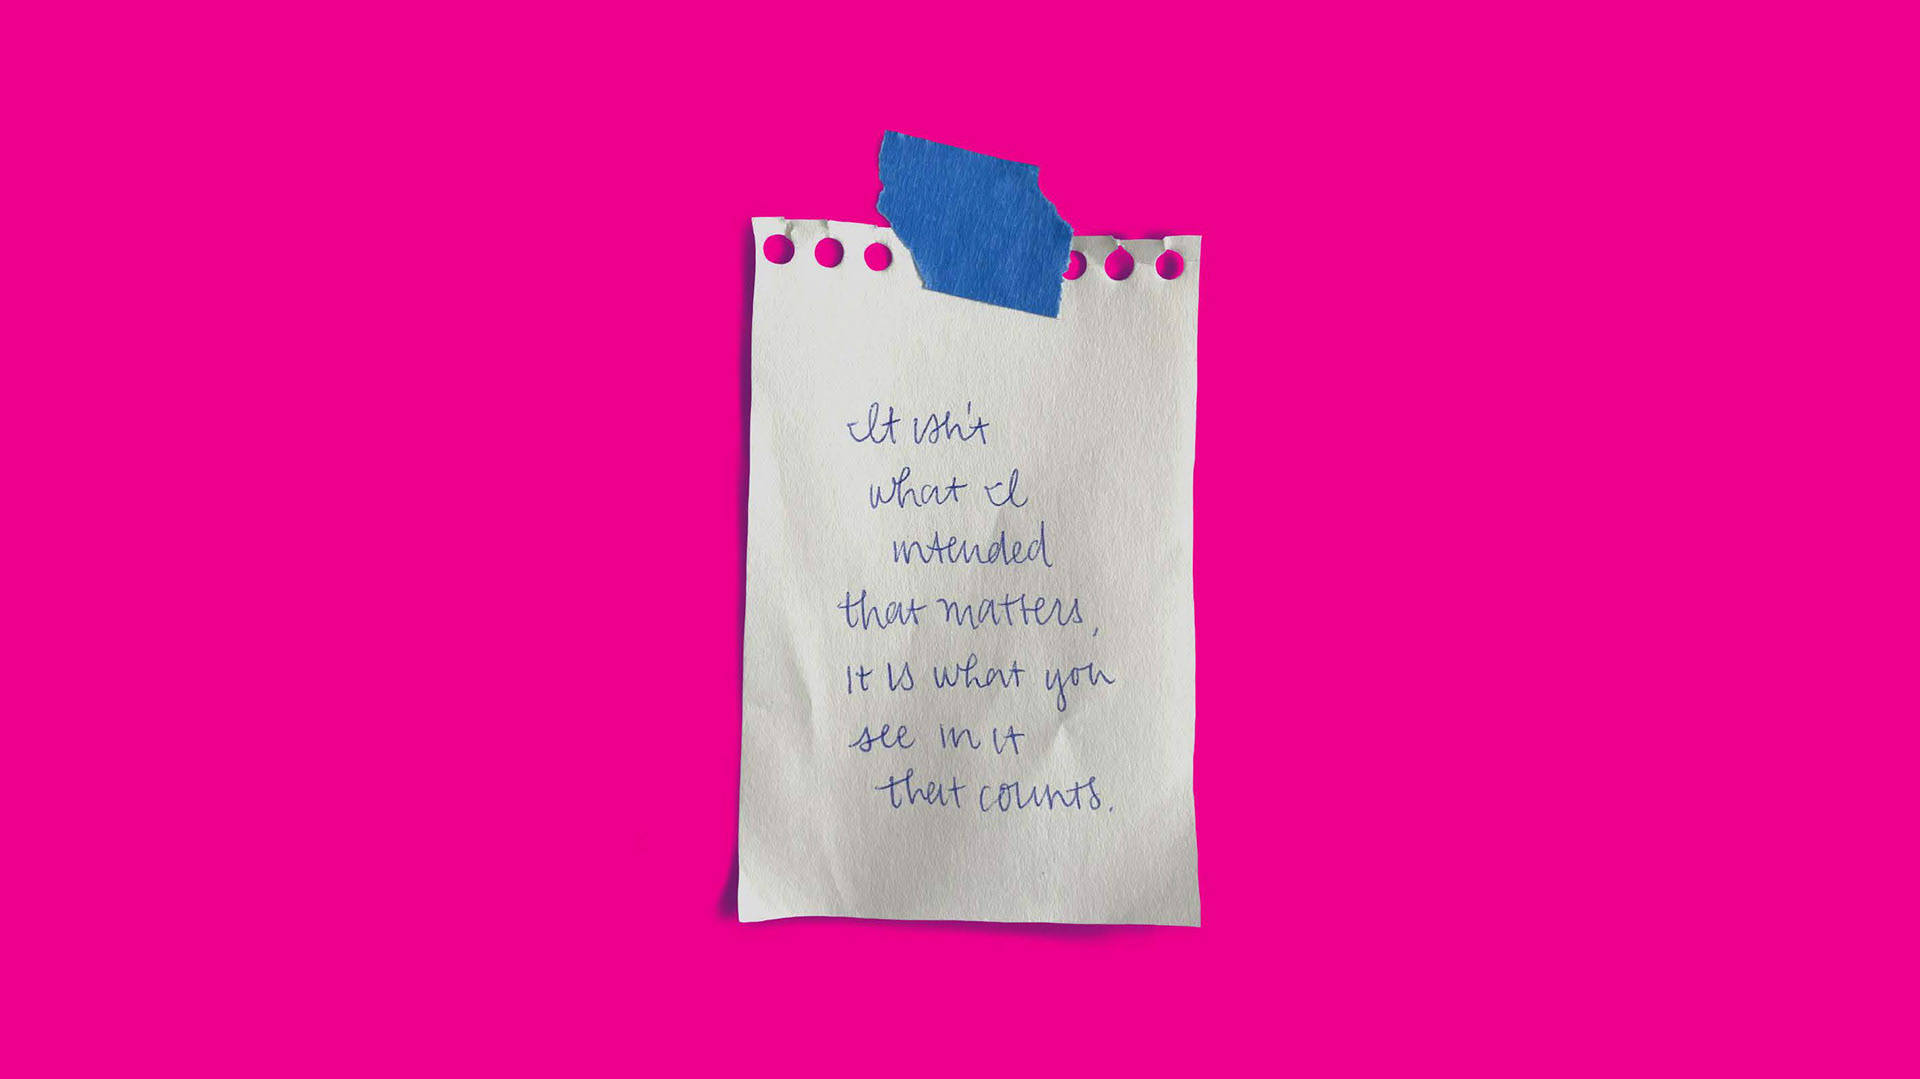 It isn't
what I
intended
that matters,
it is what you
see in it
that counts.